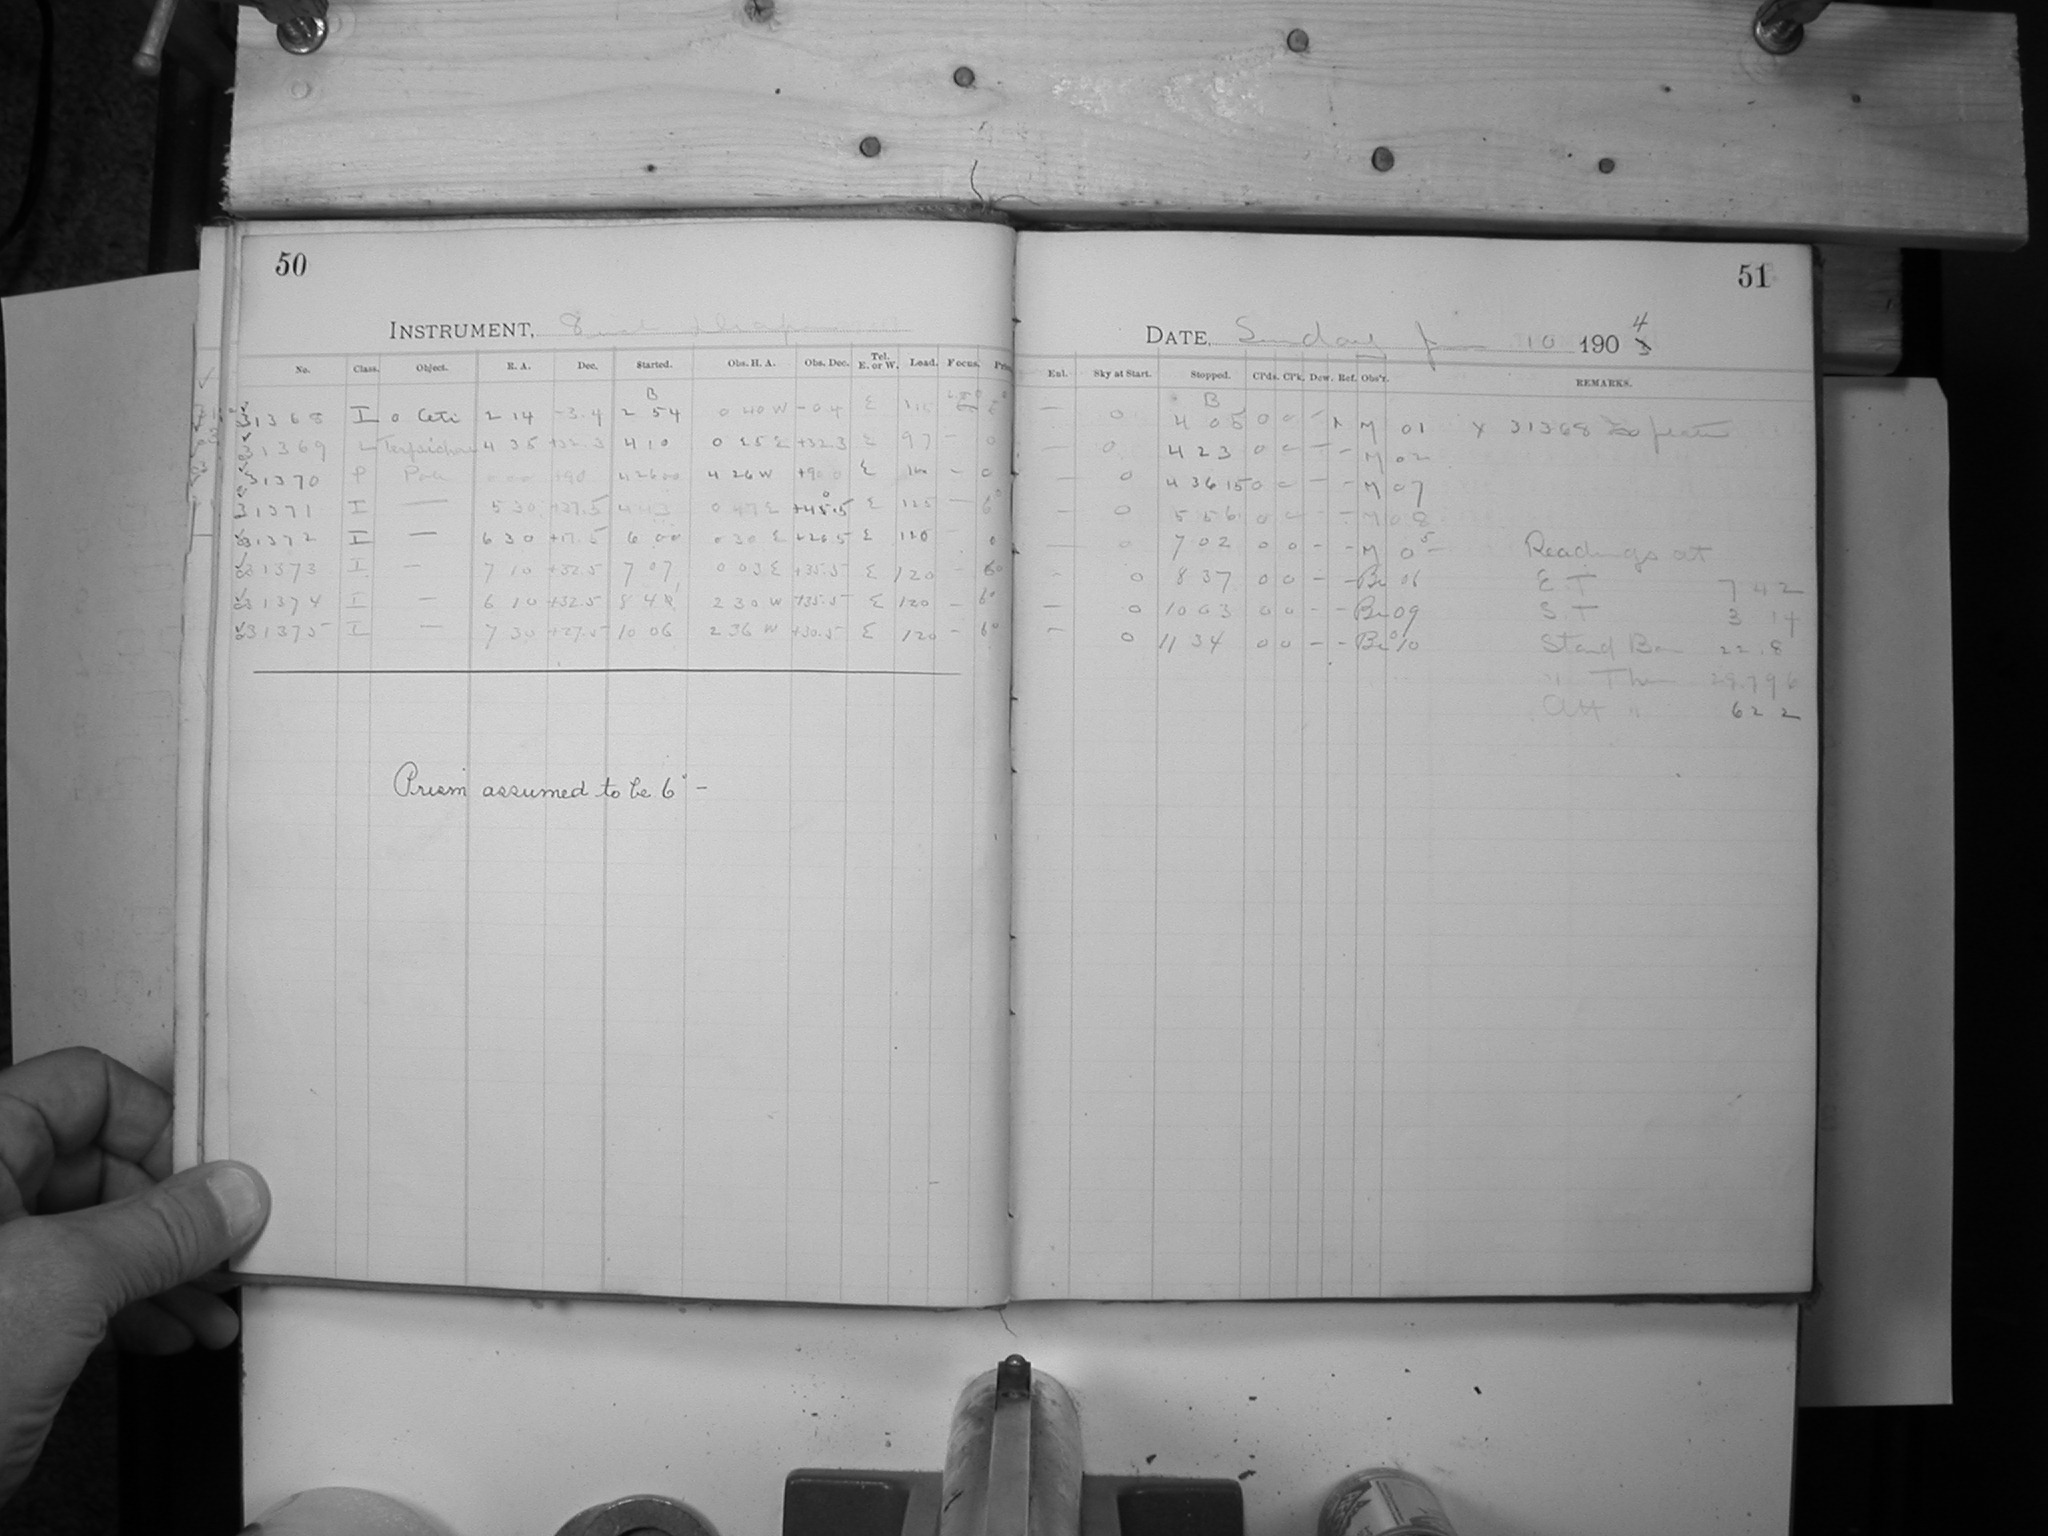 50
INSTRUMENT, 8 inch Draper
No. Class. Object. R. A. Dec. Started. Obs. H. A. Obs. Dec. Tel. E. or W. Lead. Focus.
B
31368 I o Ceti 2 14 -3.4 2 54 0 40 W -0.4 E
31369 L Terpsichore 4 35 +32.3 4 10 0 25 E +32.3 E 97 - 0
31370 P Pole 0 00 +90 4 26 00 4 26 W +90 0 E 100 - 0
31371 I — 5 30 +37.5 4 43 0 47 E +45.5 E 125 — 6°
31372 I — 6 30 +17.5 6 00 0 30 E +26.5 E 120 - 0
31373 I — 7 10 +32.5 7 07 0 03 E +35.5 E 120 - 6°
31374 I — 6 10 +32.5 8 40 2 30 W +35.5 E 120 - 6°
31375 I — 7 30 +27.5 10 06 2 36 W +30.5 E 120 - 6°
Prism assumed to be 6° -
51
DATE, Sunday Jan 10 1904
Exl. Sky at Start. Stopped. Cl'ds. Cl'k. Dew. Ref. Obs'r. REMARKS.
B
— 0 4 05 0 0 - x M 01 x 31368
— 0 4 23 0 0 - - M 02
— 0 4 36 15 0 0 - - M 07
— 0 5 56 0 0 - - M 08
— 0 7 02 0 0 - - M 05 Readings at
- 0 8 37 0 0 - - Be 06 E.T 7 42
— 0 10 03 0 0 - - Be 09 S.T 3 14
- 0 11 34 0 0 - - Be 10 Stand Bar 22.8
" Ther 29.796
Att " 62 2